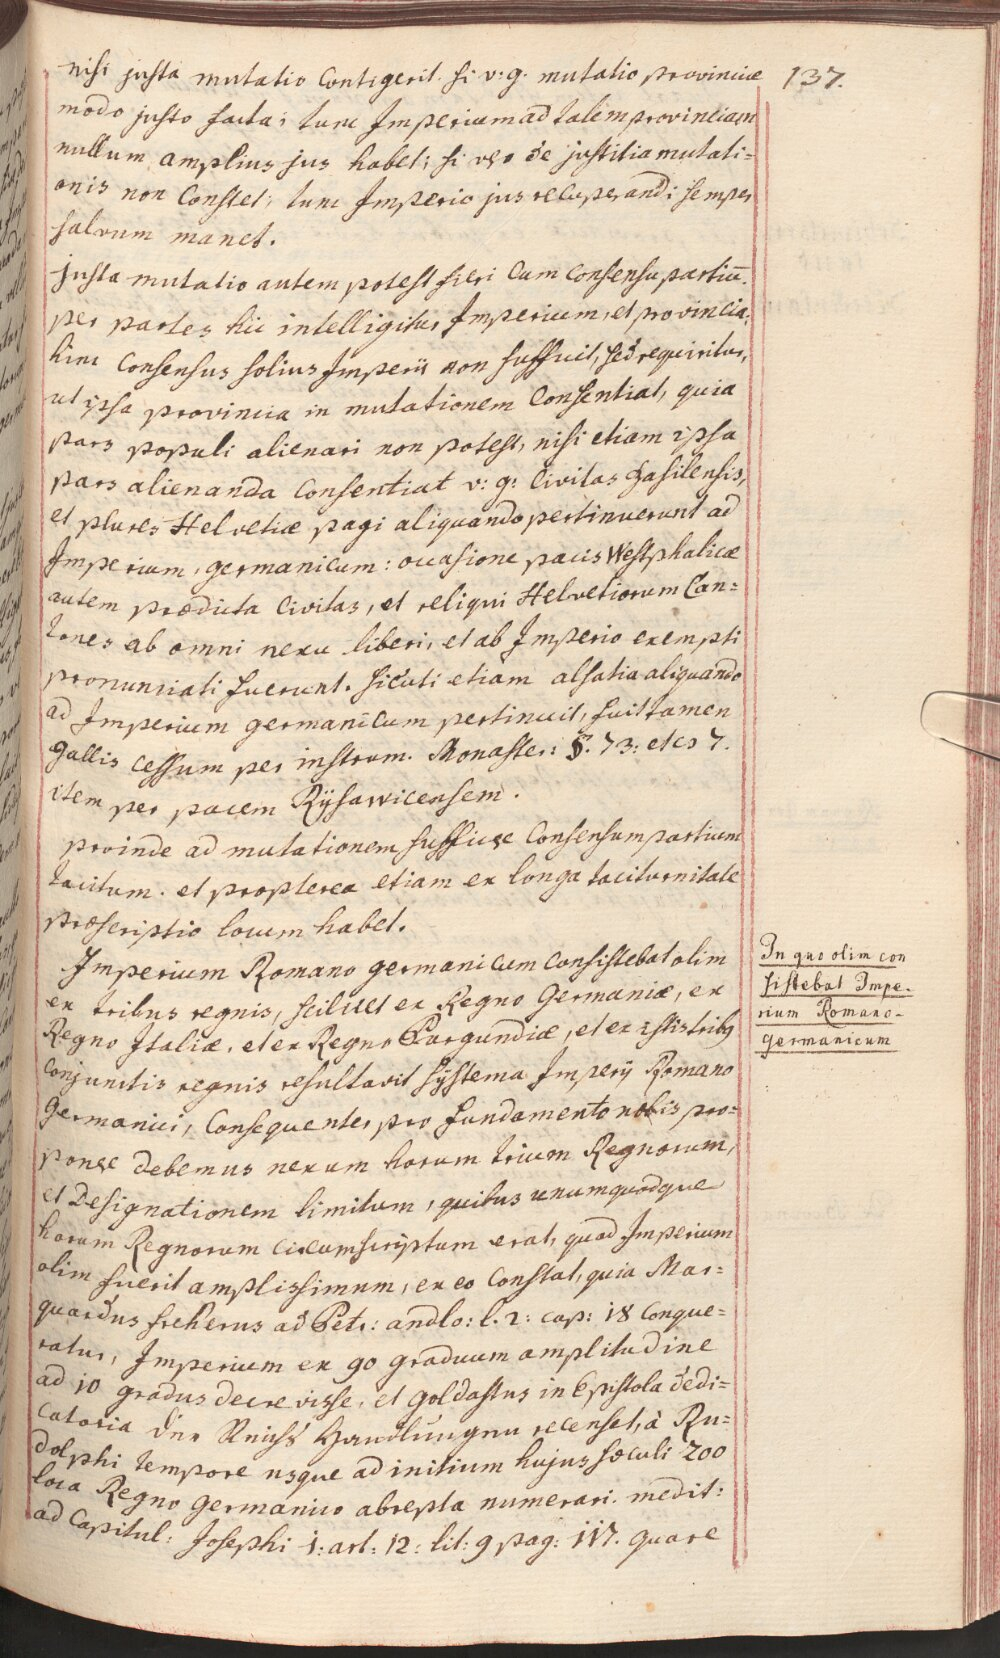 137.
nisi justa mutatio Contigerit. si v: g. mutatio provinciæ
modo justo facta; tunc Imperium ad talem provinciam
nullum amplius jus habet; si vero de justitia mutati=
onis non Constet, tunc Imperio jus recuperandi semper
salvum manet.
justa mutatio autem potest fieri Cum Consensu partiū.
per partes hic intelligitur Imperium, et provincia,
hinc Consensus solius Imperii non sufficit, sed requiritur,
ut ipsa provincia in mutationem Consentiat, quia
pars populi alienari non potest, nisi etiam ipsa
pars alienanda Consentiat v: g: Civitas Basilensis,
et plures Helvetiæ pagi aliquando pertinuerunt ad
Imperium, germanicum: occasione pacis Westphalicæ
autem prædicta Civitas, et reliqui Helvetiorum Can=
tones ab omni nexu liberi, et ab Imperio exempti
pronunciati fuerunt. sicuti etiam alsatia aliquando
ad Imperium germanicum pertinuit, fuit tamen
Gallis cessum per instrum. Monaster: §. 73: et
item per pacem Rijsawicensem.
proinde ad mutationem sufficere Consensum partium
tacitum. et propterea etiam ex longa taciturnitate
præscriptio locum habet.
Imperium Romano germanicum Consistebat olim
ex tribus regnis, scilicet ex Regno Germaniæ, ex
Regno Italiæ, et ex Regno Burgundiæ, et ex istis tribus
Conjunctis regnis resultavit Systema Imperij Romano
Germanici, Consequenter pro fundamento nobis pro=
ponere debemus nexum horum trium Regnorum,
et Designationem limitum, quibus unumquodque
horum Regnorum circumscriptum erat, quod Imperium
olim fuerit amplissimum, ex eo Constat, quia Mar=
quardus freherus ad Petr: andlo: l. 2: cap: 18 Conque=
ratur, Imperium ex 90 graduum amplitudine
ad 10 gradus decrevisse, et Goldastus in Epistola dedi=
catoria der Reichs Handlungen recenset, à Ru=
dolphi tempore usque ad initium hujus sæculi 200
loca Regno Germanico abrepta numerari. medit:
ad Capitul: Josephi 1: art: 12: lit: 9 pag: 117. quare
In quo olim con
sistebat Impe-
rium Romano-
germanicum